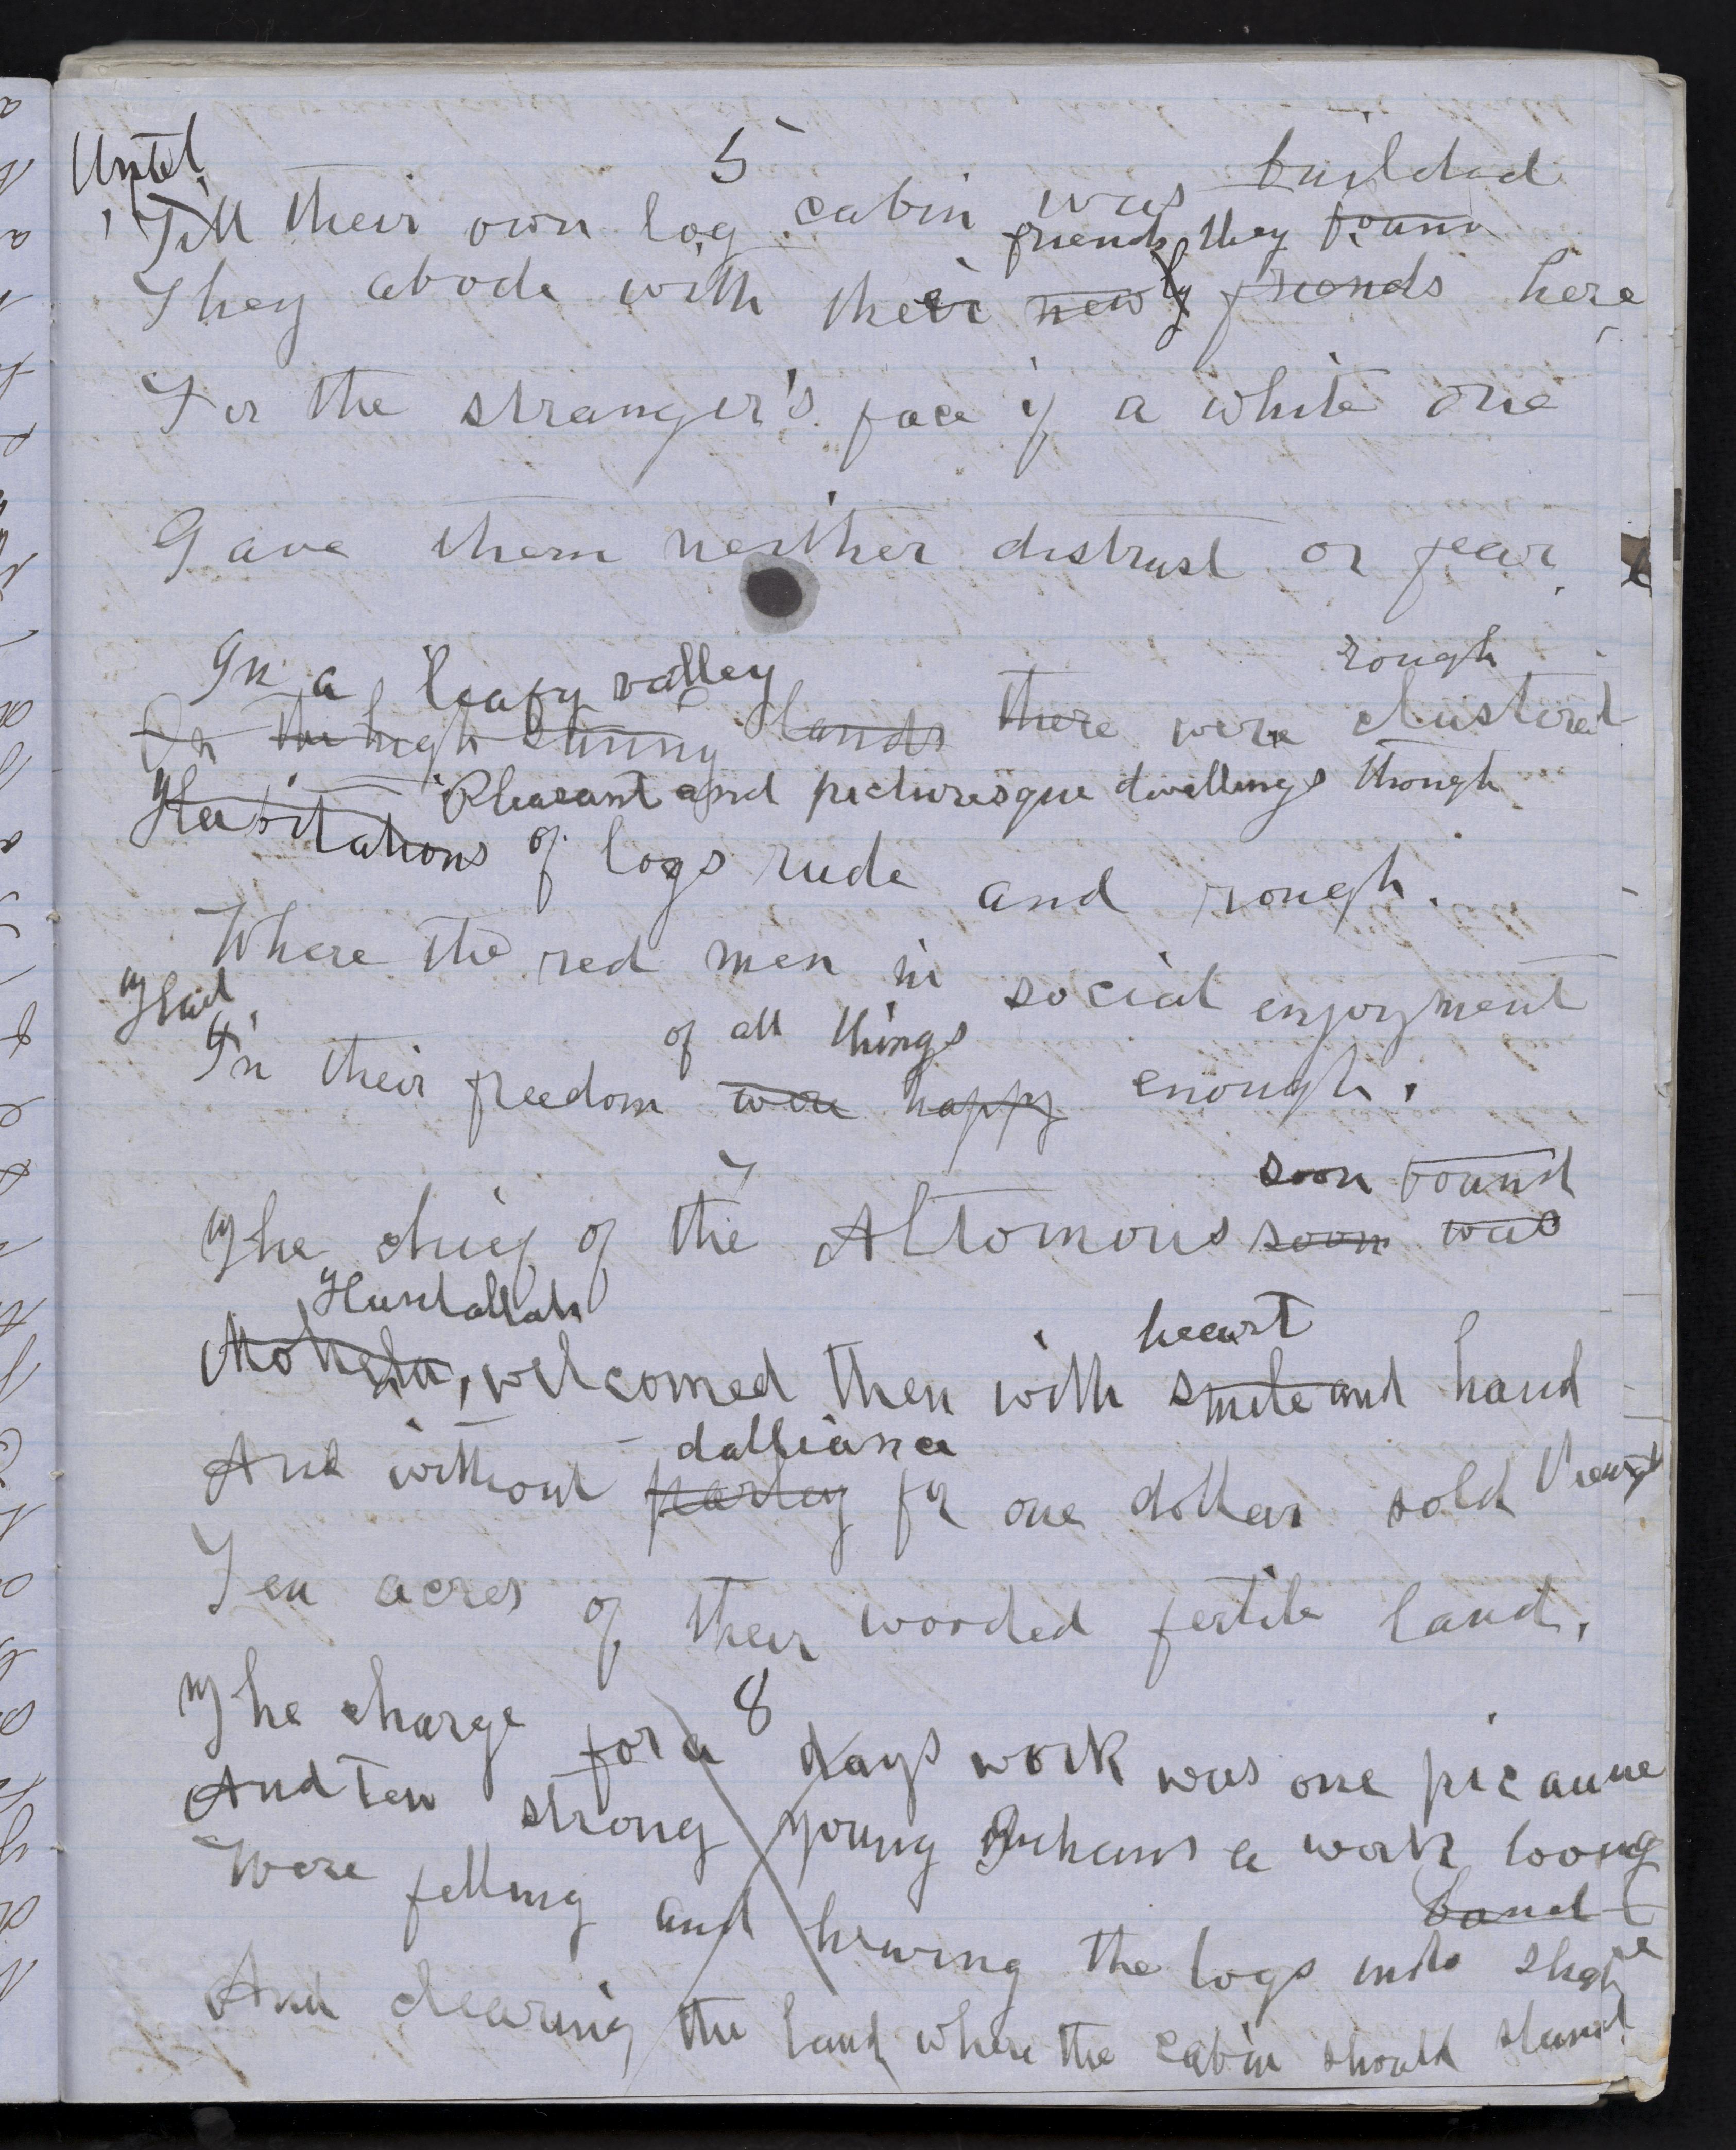 5
Until builded
Till their own log cabin was
friends they found
They abode with their newly friends here
For the stranger's face if a white one
Gave them neither distrust or fear.
In a leafy valley rough
On the high sunny lands there were clustered
Pleasant and picturesque dwellings though
Habitations of logs rude and rough.
Where the red men in social enjoyment
Had of all things
In their freedom were happy enough.
7
soon found
The chief of the Altomons soon was
Hunlallah heart
welcomed then with smile and hand
dalliance
And without parley for one dollar sold
Ten acres of their wooded fertile land.
8
The charge for a days work was one picaune
And Ten strong young Indians a work loving
band
Were felling and hewing the logs into shape
And clearing the land where the cabin should stand